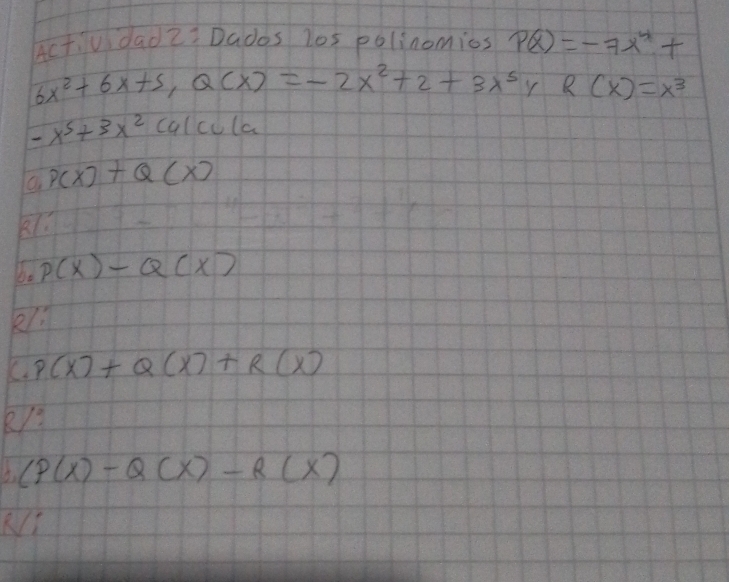 Actividad 2: Dados los polinomios P(x) = -7x⁴ +
6x² + 6x + 5, Q(x) = -2x² + 2 + 3x⁵ y R(x) = x³
-x⁵ + 3x² calcula
a. P(x) + Q(x)
R/:
b. P(x) - Q(x)
R/:
c. P(x) + Q(x) + R(x)
R/:
(P(x) - Q(x) - R(x)
R/: